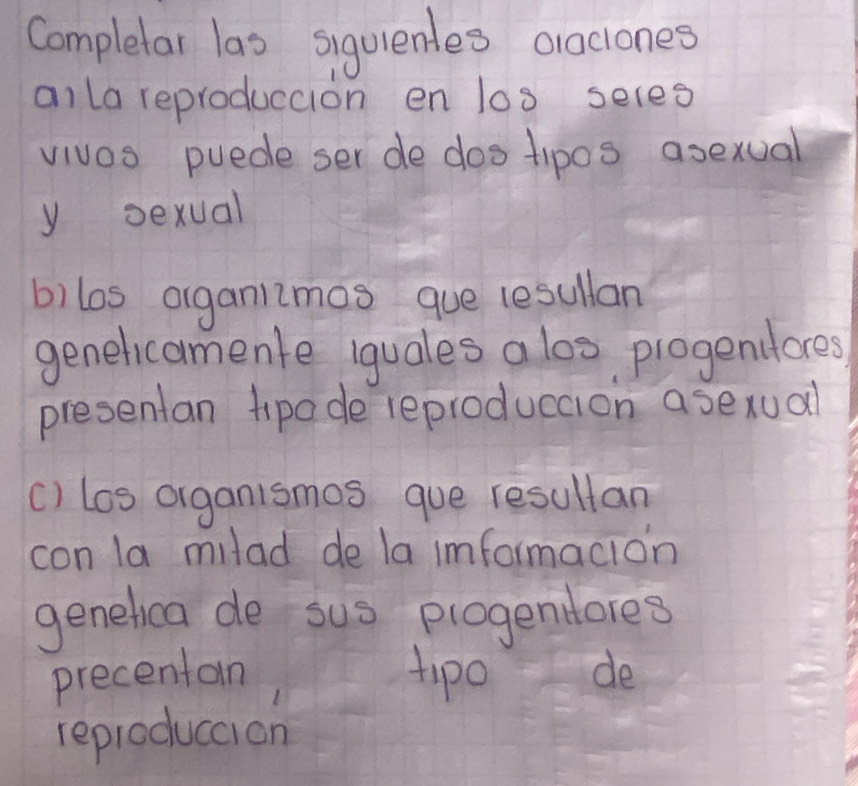 Completar las siguientes oraciones
a) La reproducción en los seres
vivos puede ser de dos tipos asexual
y sexual
b) Los organizmos que resultan
geneticamente iguales a los progenitores,
presentan tipo de reproducción asexual
c) Los organismos que resultan
con la mitad de la imformación
genetica de sus progenitores
precentan, tipo de
reproduccion